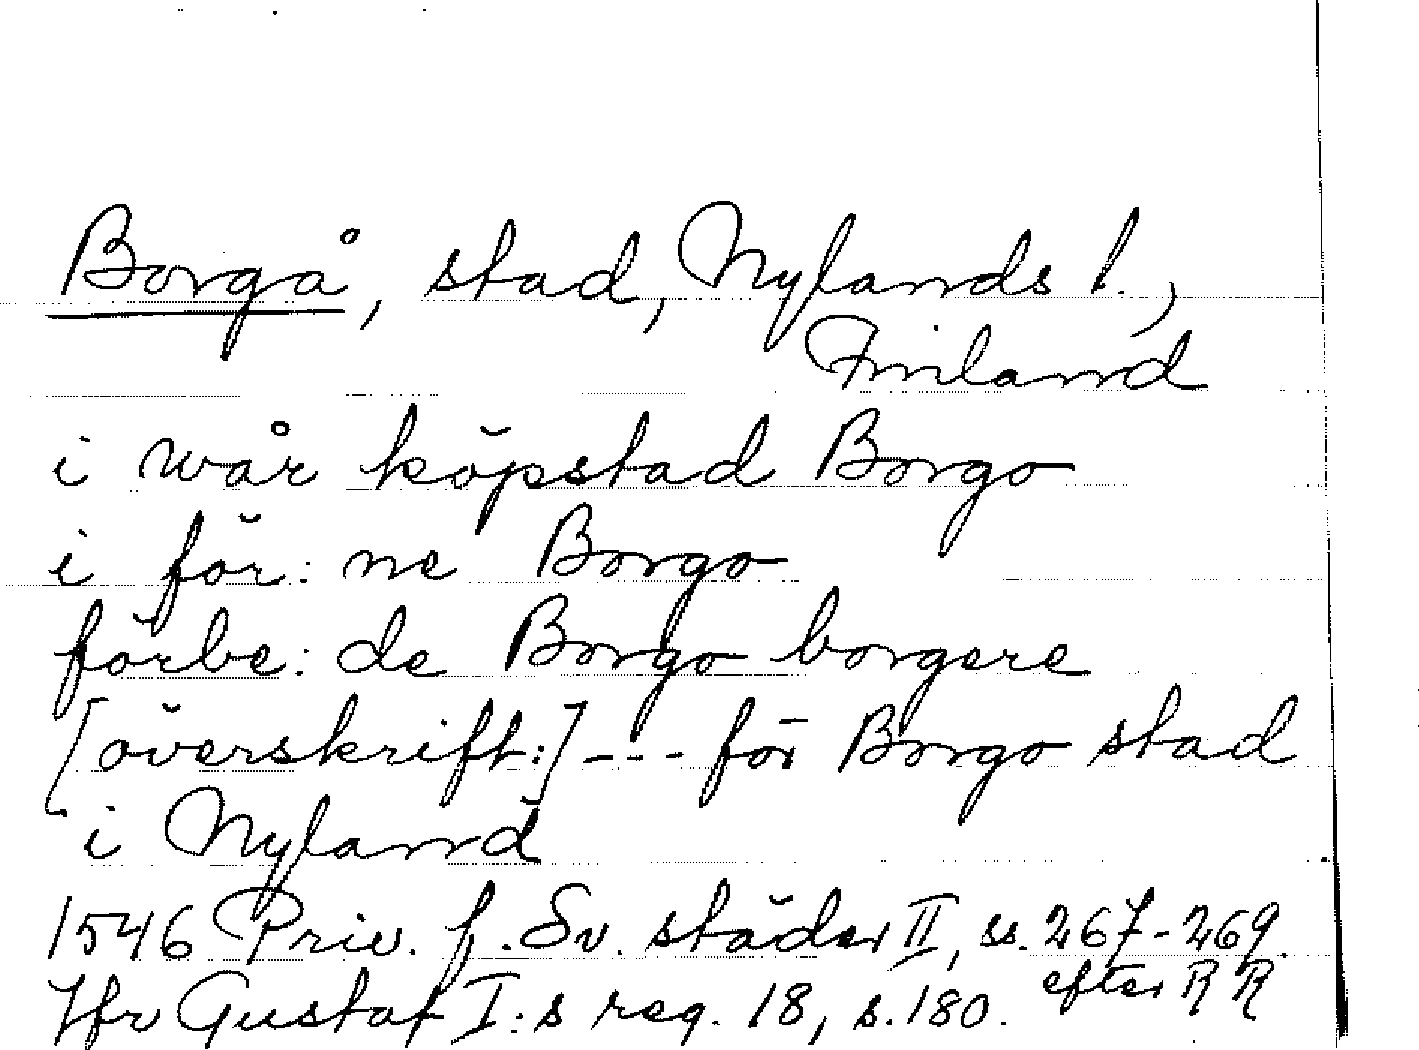 Borgå, stad, Nylands l.,
Finland
i wår köpstad Borgo
i för: ne Borgo
förbe: de Borgo borgere
[överskrift:] --- för Borgo stad
i Nyland
1546 Priv. f. Sv. städer II, ss. 267-269.
efter R R
Jfr Gustaf I:s reg. 18, s. 180.